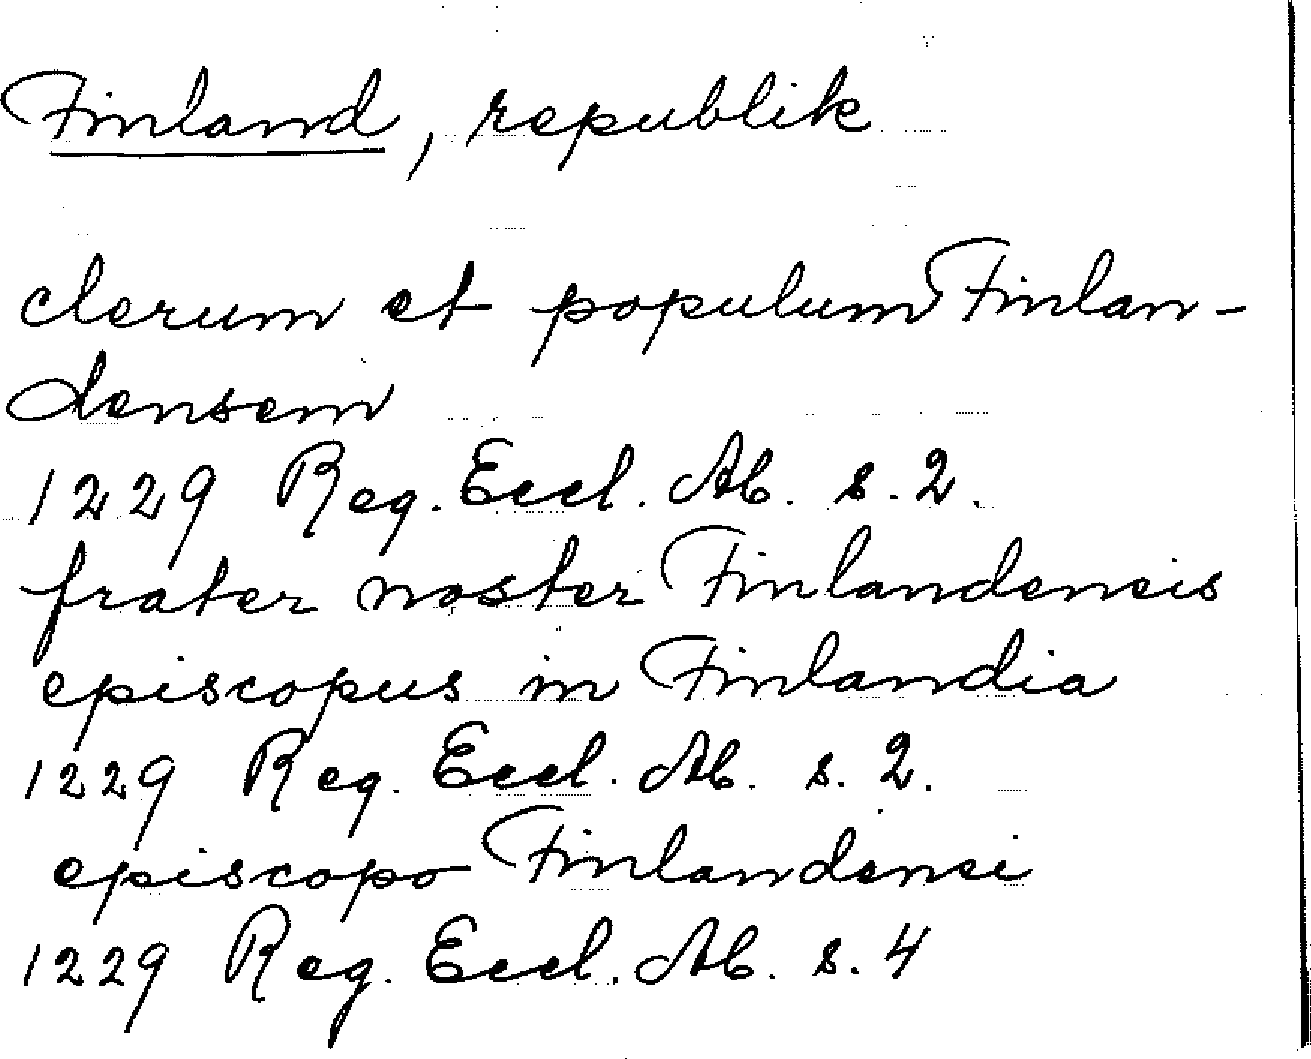 Finland, republik
clerum et populum Finlan-
densem
1229 Reg. Eccl. Ab. s. 2.
frater noster Finlandensis
episcopus in Finlandia
1229 Reg. Eccl. Ab. s. 2.
episcopo Finlandensi
1229 Reg. Eccl. Ab. s. 4